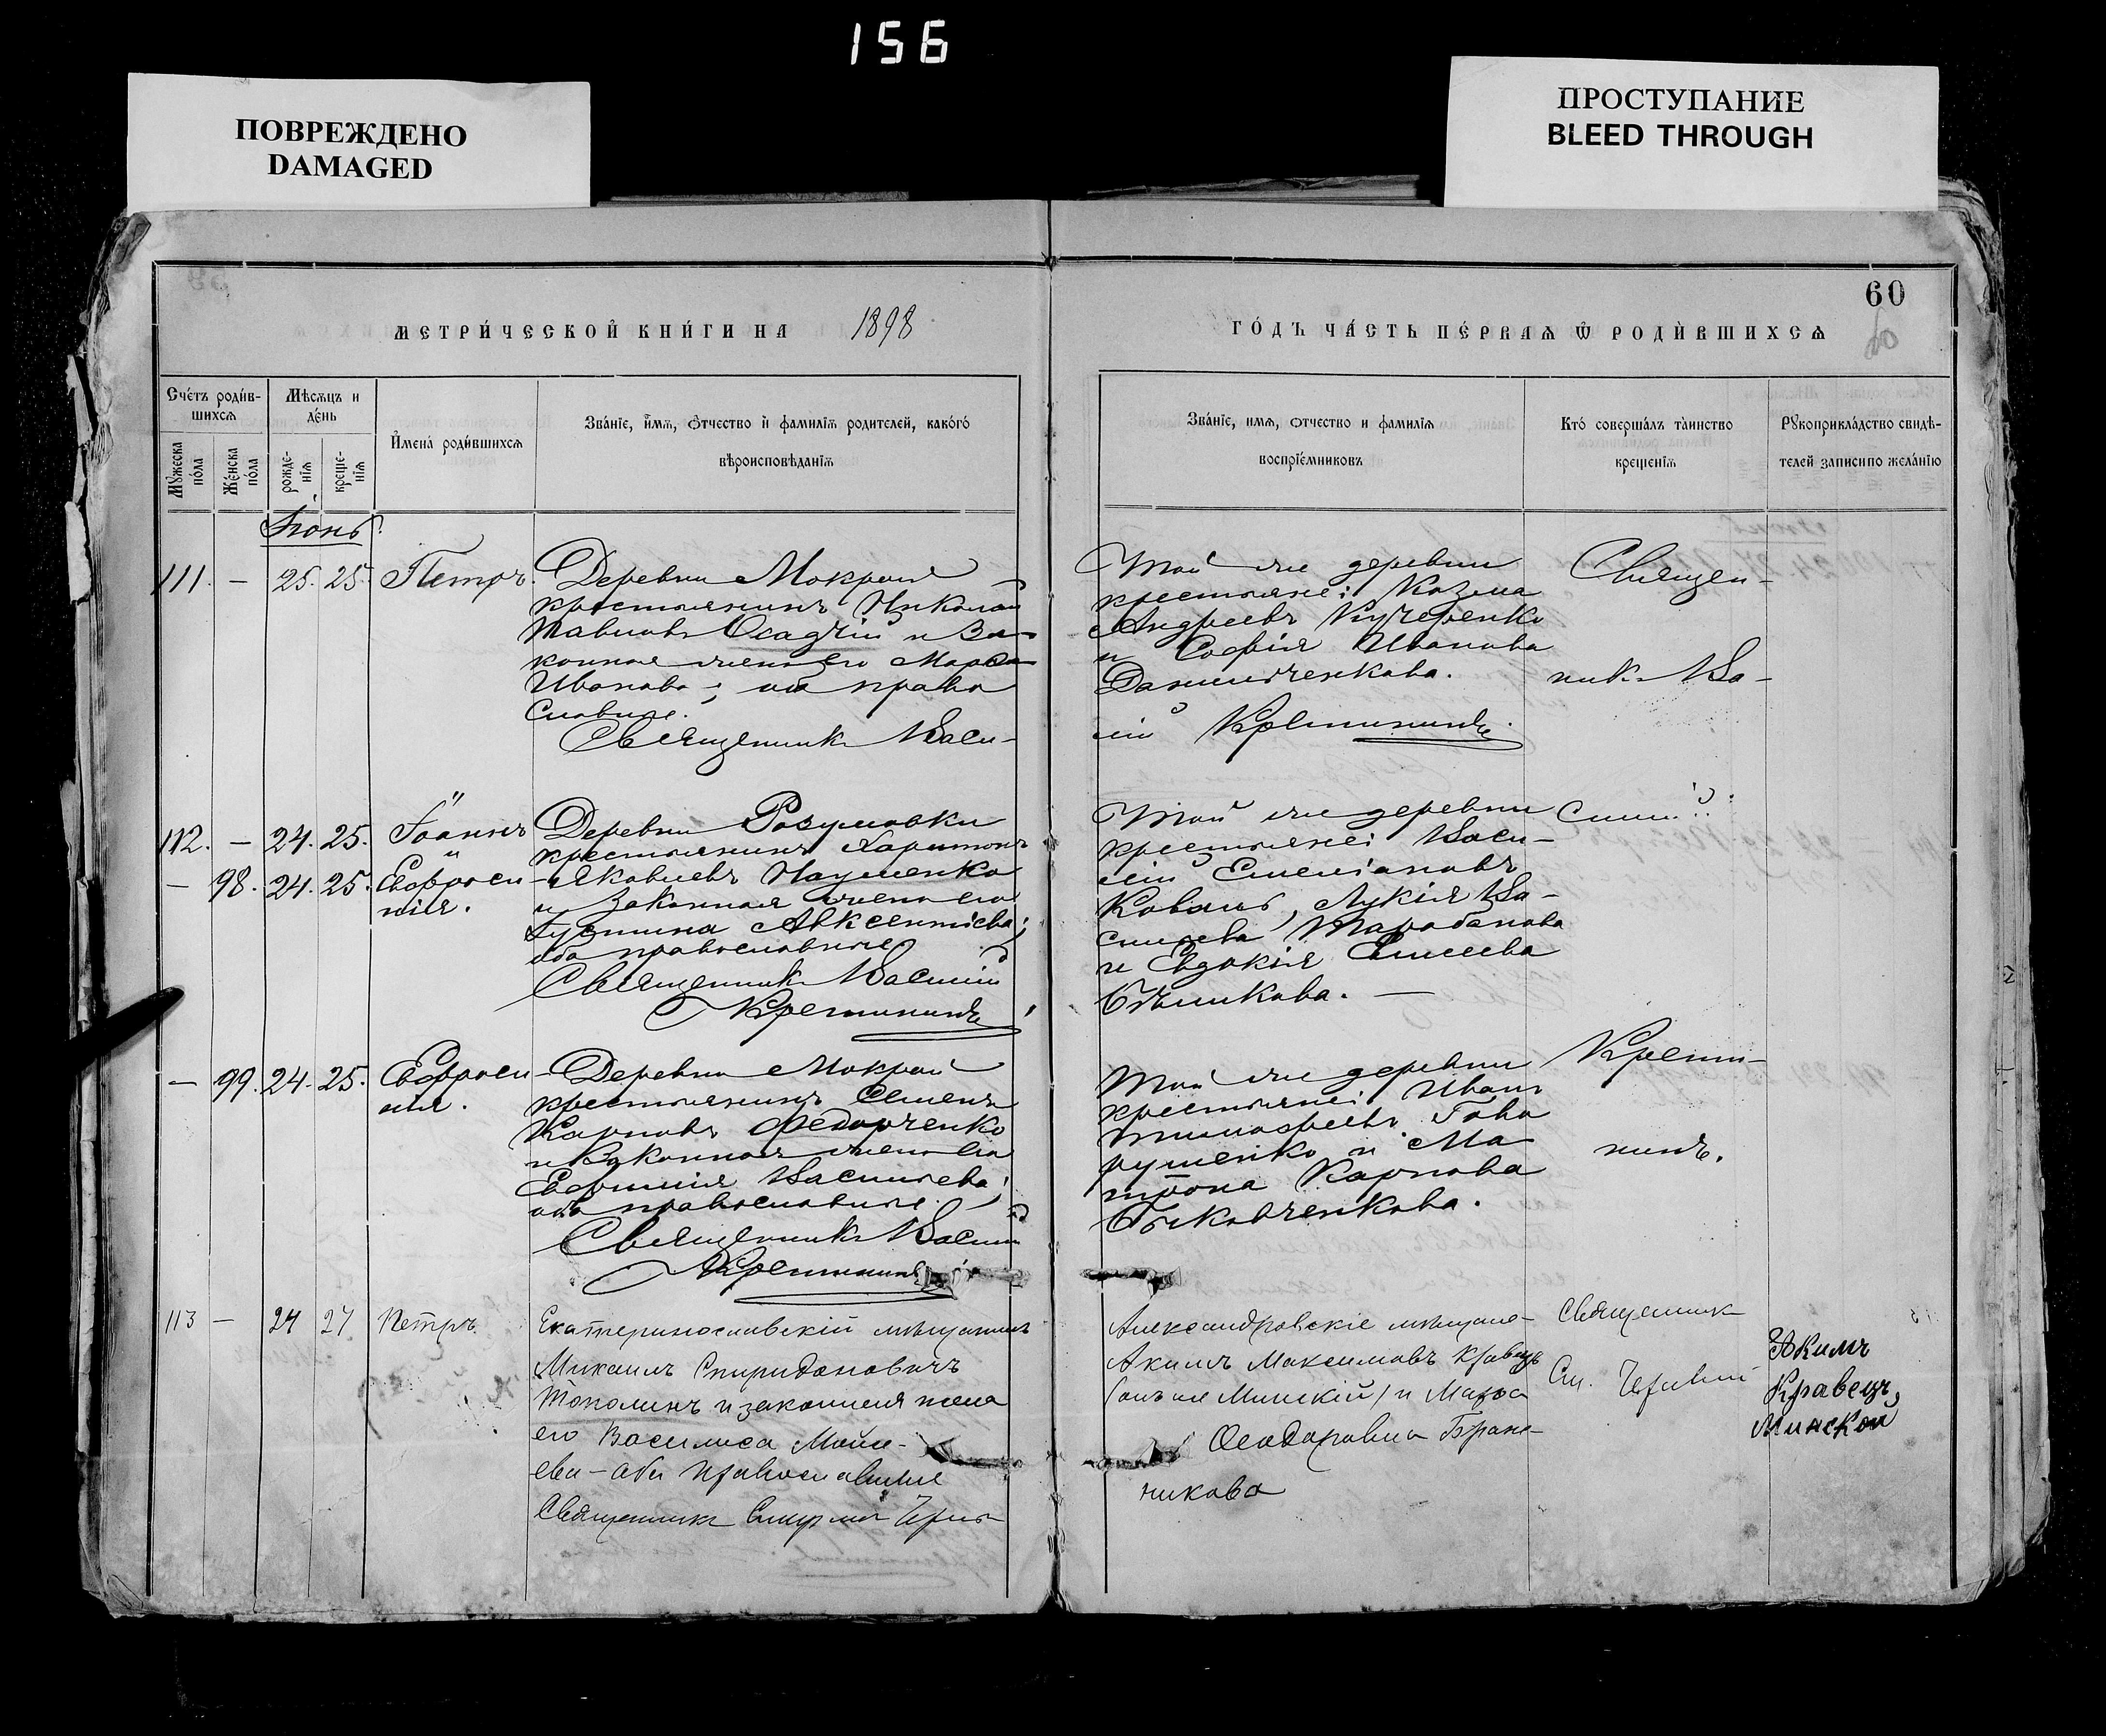 156
ПОВРЕЖДЕНО
DAMAGED
ПРОСТУПАНИЕ
BLEED THROUGH
60
МЕТРИ́ЧЕСКОЙ КНИ́ГИ НА 1898
ГО́ДЪ ЧА́СТЬ ПЕ́РВАѦ Ѿ РОДИ́ВШИХСѦ
Сче́тъ роди́в-
шихсѧ
Мѣсѧцъ и
де́нь
Мꙋ́жеска
по́ла
Же́нска
по́ла
рожде-
нїѧ
креще-
нїѧ
Имена́ роди́вшихсѧ
Зва́нїе, имѧ, отчество и фамилїѧ родителей, како́гѡ
вѣроисповѣданїѧ
Зва́нїе, имѧ, отчество и фамилїѧ
воспрїе́мниковъ
Кто́ соверша́лъ та́инство
крещенїѧ
Рꙋкоприкла́дство свидѣ-
телей записи по жела́нїю
Іюнь
111. — 25. 25. Петръ.
Деревни Мокрой
крестьянинъ Николай
Павловъ Осадчій и за-
конная жена его Марѳа
Иванова; оба право
славные.
Священникъ Васи-
Той же деревни
крестьяне: Козма
Андреевъ Кучеренко
и Софія Иванова
Данильченкова.
лій Кретининъ.
Священ-
никъ Ва-
112. — 24. 25. Іоаннъ
— 98. 24. 25. Евфроси
нія.
Деревни Розумовки
крестьянинъ Харитонъ
Яковлевъ Науменко
и законная жена его
Іустина Авксентіева;
оба православные
Священникъ Василій
Кретининъ
Той же деревни
крестьяне: Васи-
лій Емеліановъ
Коваль, Лукія Ва-
сильева Тарабанова
и Евдокія Елисеева
Бѣликова. —
силій
— 99. 24. 25. Евфроси
нія.
Деревни Мокрой
крестьянинъ Семенъ
Карповъ Федорченко
и законная жена его
Евфимія Васильева;
оба православные
Священникъ Василій
Кретининъ
Той же деревни
крестьяне: Иванъ
Тимофеевъ Гова
рушенко и Ма
трона Карпова
Быковченкова.
Крети-
нинъ.
113 — 24 27 Петръ
Екатеринославскій мѣщанинъ
Михаилъ Спиридоновичъ
Тополинъ и законная жена
его Василиса Мойсе-
ева – оба православные
Священникъ
Александровскіе мѣщане
Акимъ Максимовъ Кравецъ
(онъ же Минскій) и Марѳа
Ѳеодоровна
никова
Священникъ
Якимъ
Кравецъ,
Минской